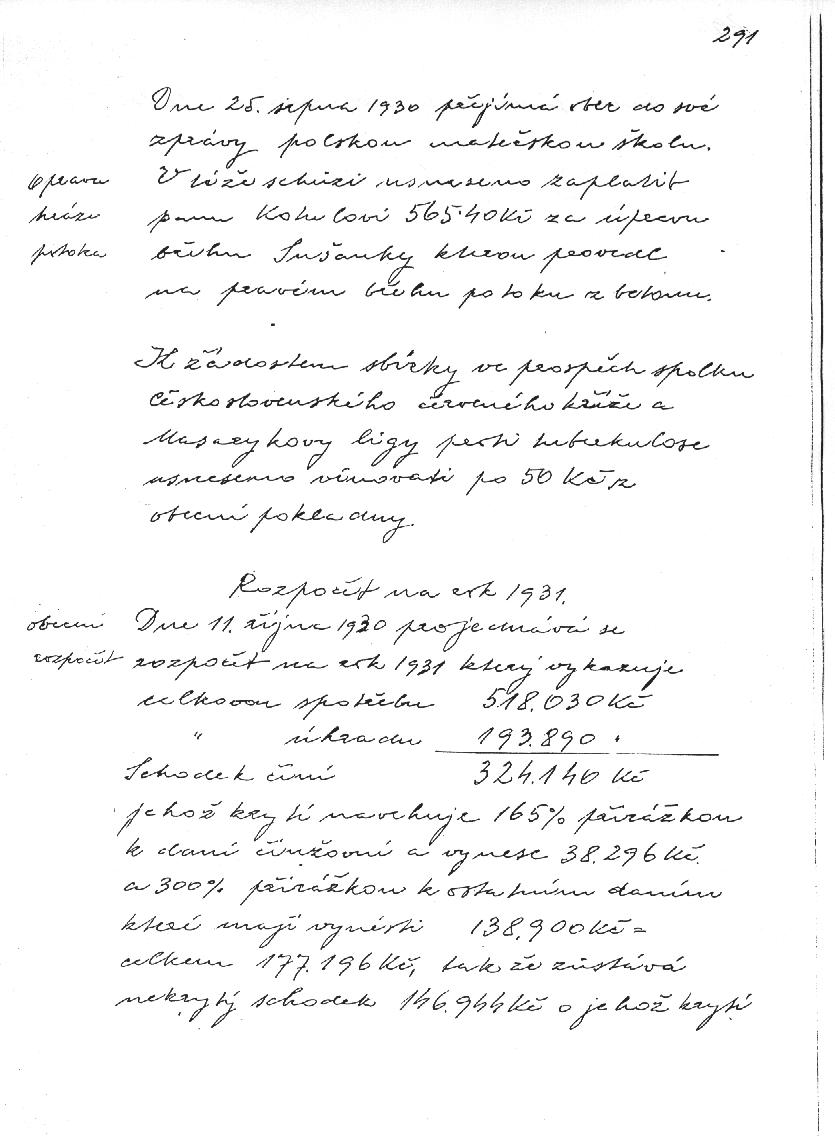 291
Dne 25. srpna 1930 přejímá obec do své
zprávy polskou mateřskou školu.
Oprava
hráze
potoka
V téže schůzi usneseno zaplatit
panu Kotulovi 565.40 Kč za úpravu
břehu Sušanky kterou provedl
na pravém břehu potoku z betonu.
K žádostem sbírky ve prospěch spolku
Československého červeného kříže a
Masarykovy ligy proti tuberkulose
usneseno věnovati po 50 Kč z
obecní pokladny.
Rozpočít na rok 1931.
obecní
rozpočít
Dne 11. října 1930 projednává se
rozpočít na rok 1931 který vykazuje
celkovou spotřebu 518.030 Kč
" úhradu 193.890 "
Schodek činí 324.140 Kč
jehož krytí navrhuje 165% přirážkou
k dani činžovní a vynese 38.296 Kč.
a 300% přirážkou k ostatním daním
které mají vynésti 138.900 Kč =
celkem 177.196 Kč, tak že zůstává
nekrytý schodek 146.944 Kč o jehož krytí